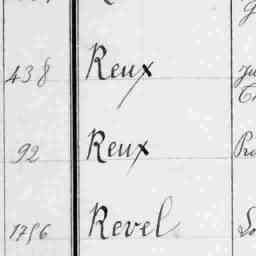 438 Reux
92 Reux
1756 Revel